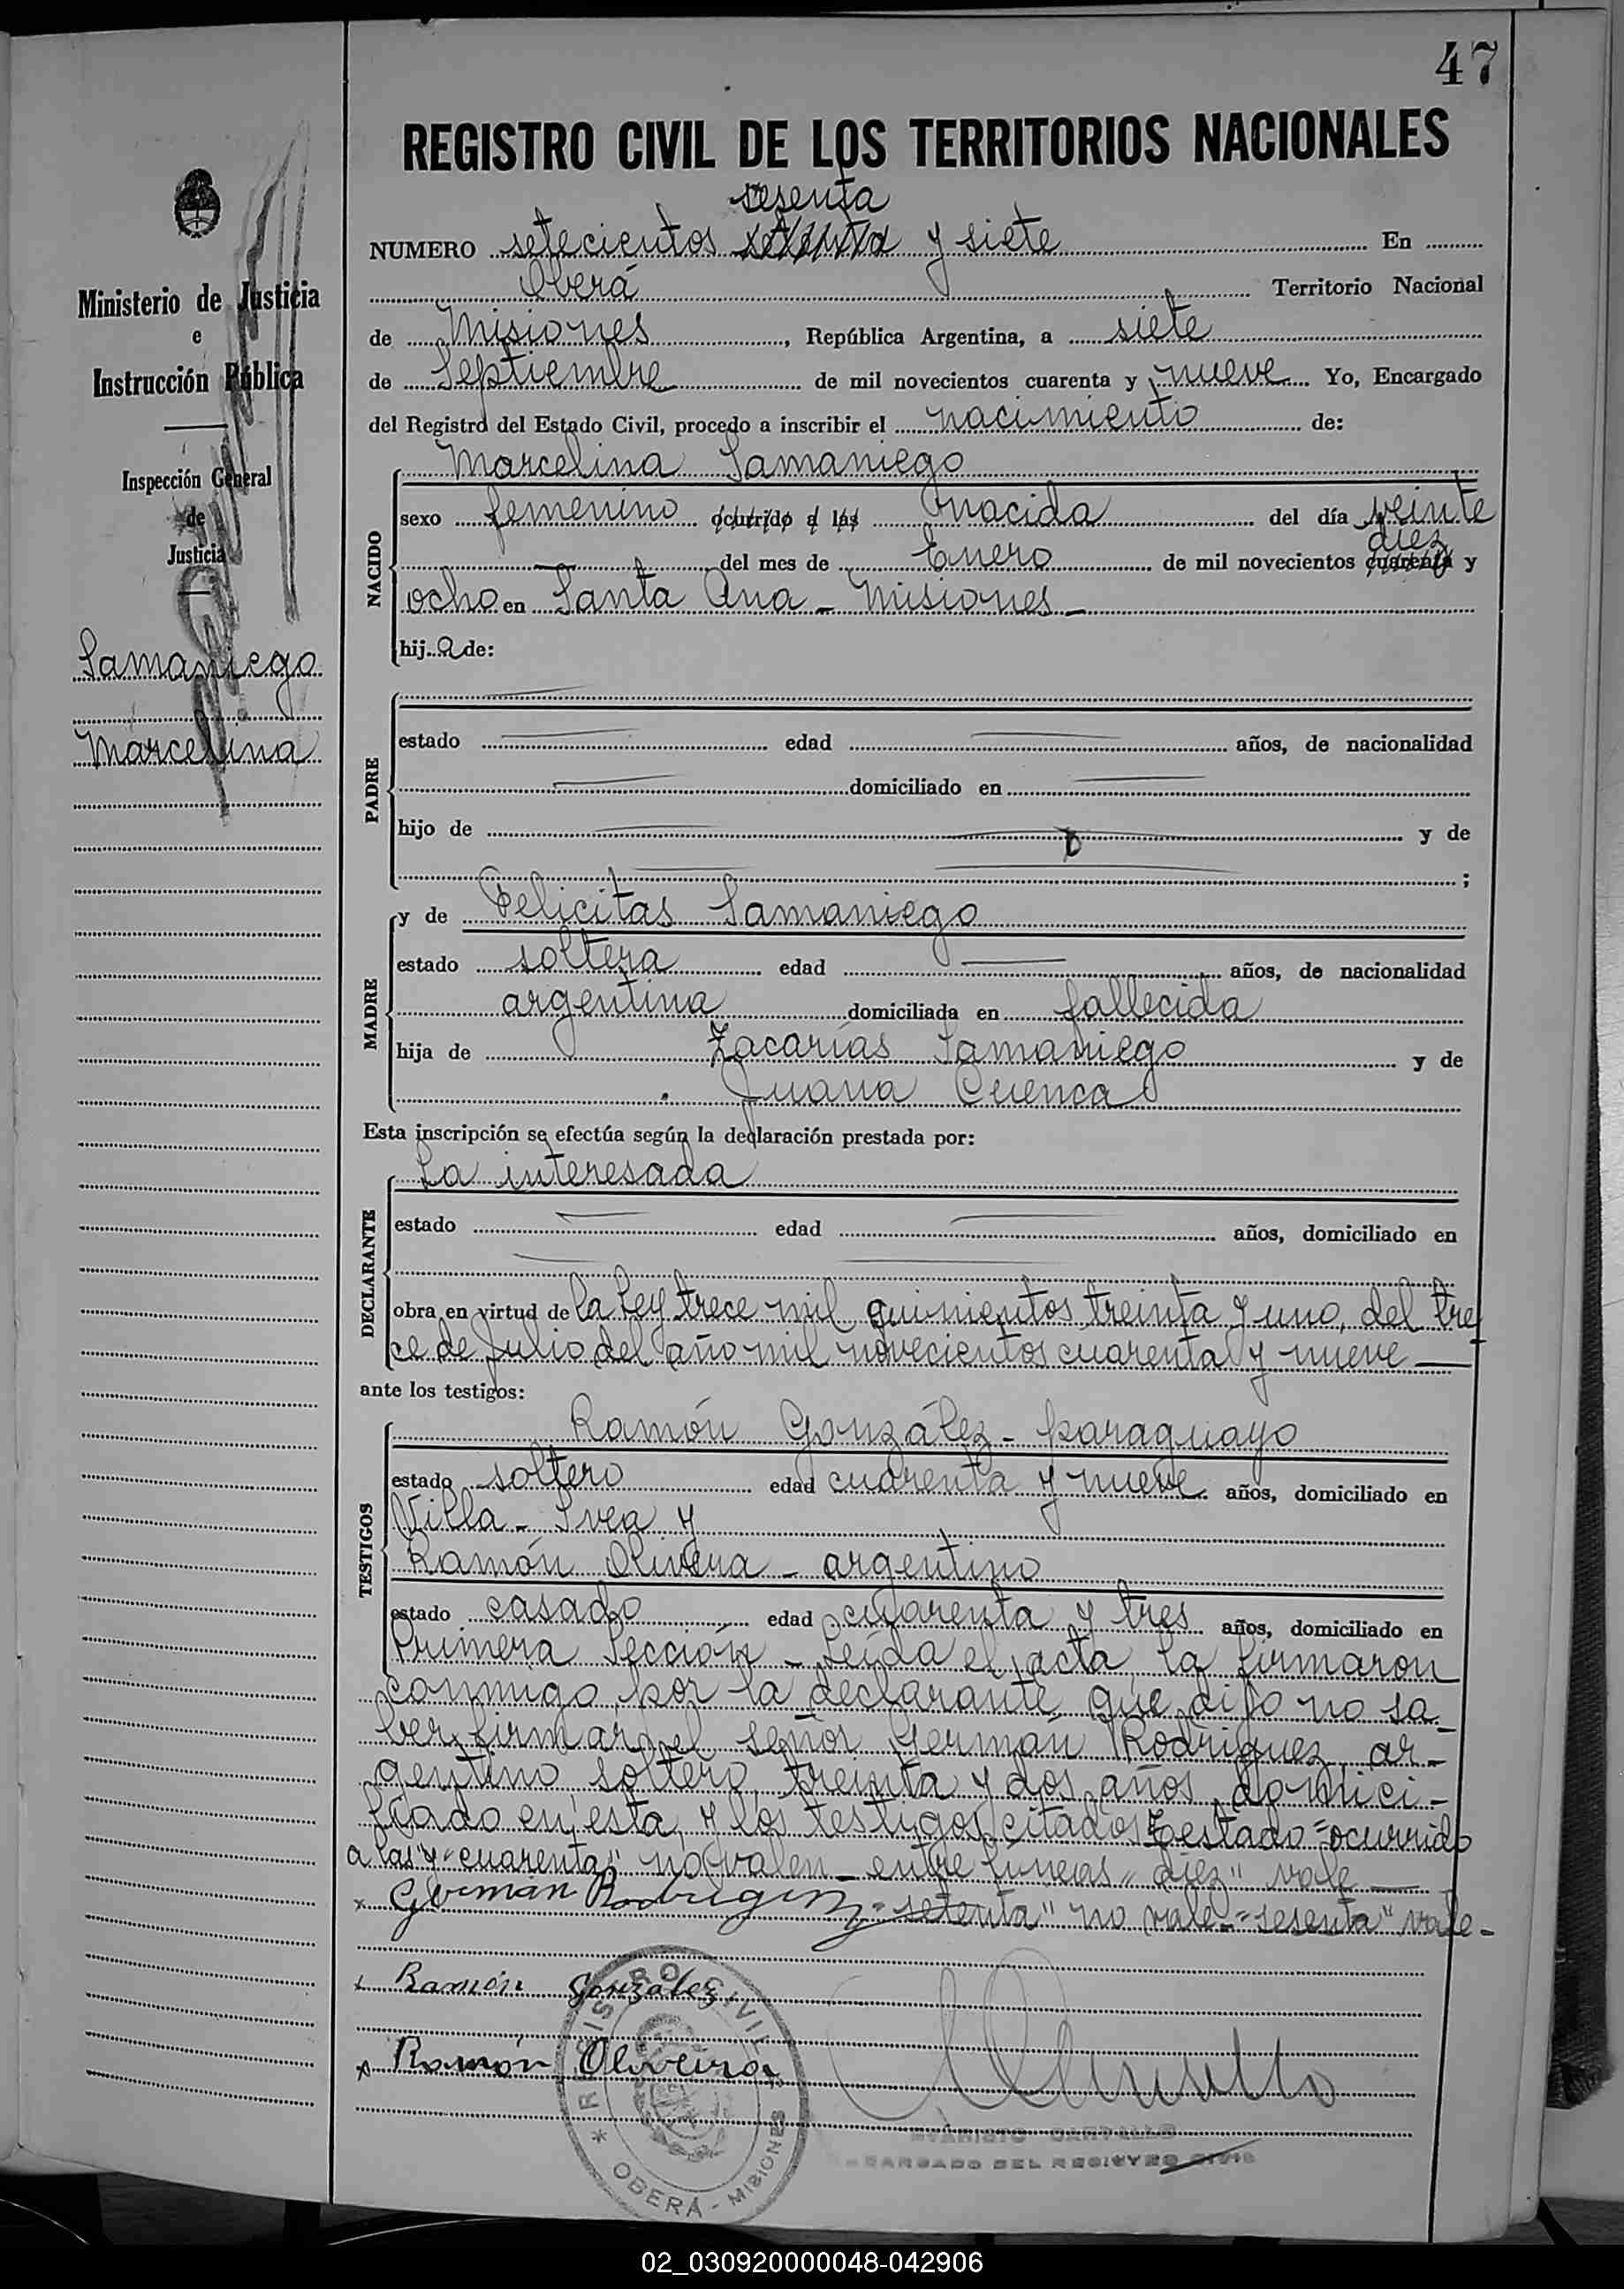 47
REGISTRO CIVIL DE LOS TERRITORIOS NACIONALES
sesenta
NUMERO setecientos setenta y siete En
Oberá Territorio Nacional
de Misiones, República Argentina, a siete
de Septiembre de mil novecientos cuarenta y nueve Yo, Encargado
del Registro del Estado Civil, procedo a inscribir el nacimiento de:
Marcelina Samaniego
NACIDO
sexo femenino ocurrido a las nacida del día veinte
diez
del mes de Enero de mil novecientos cuarenta y
ocho en Santa Ana - Misiones -
hija de:
PADRE
estado edad años, de nacionalidad
domiciliado en
hijo de y de
;
MADRE
y de Felicitas Samaniego
estado soltera edad años, de nacionalidad
argentina domiciliada en fallecida
hija de Zacarías Samaniego y de
Juana Cuenca
Esta inscripción se efectúa según la declaración prestada por:
DECLARANTE
La interesada
estado edad años, domiciliado en
obra en virtud de la Ley trece mil quinientos treinta y uno, del tre
ce de Julio del año mil novecientos cuarenta y nueve
ante los testigos:
TESTIGOS
Ramón González - paraguayo
estado soltero edad cuarenta y nueve años, domiciliado en
Villa - Svea y
Ramón Olivera - argentino
estado casado edad cuarenta y tres años, domiciliado en
Primera Sección - Leída el acta, la firmaron
conmigo, por la declarante, que dijo no sa-
ber firmar, el señor Germán Rodríguez, ar-
gentino soltero, treinta y dos años, domici-
liado en esta, y los testigos citados Testado "ocurrido
a las" y "cuarenta" no valen - entre líneas "diez" vale
x Germán Rodriguez "setenta" no vale - "sesenta" vale -
x Ramón González
x Ramón Oliveira
REGISTRO CIVIL
* OBERÁ - MISIONES
EVARISTO CARVALLO
ENCARGADO DEL REGISTRO CIVIL
Ministerio de Justicia
e
Instrucción Pública
Inspección General
de
Justicia
Samaniego
Marcelina
02_030920000048-042906